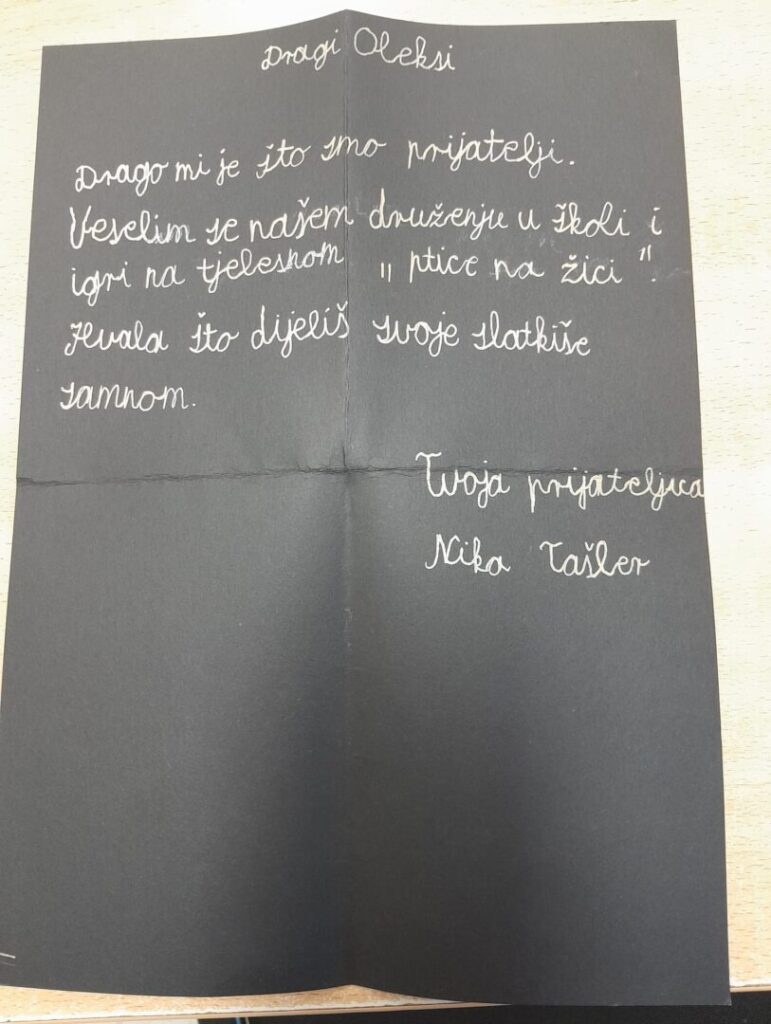 Dragi Oleksi
Drago mi je što smo prijatelji.
Veselim se našem druženju u školi i
igri na tjelesnom „ptice na žici".
Hvala što dijeliš svoje slatkiše
samnom.
Tvoja prijateljica
Nika Tašler